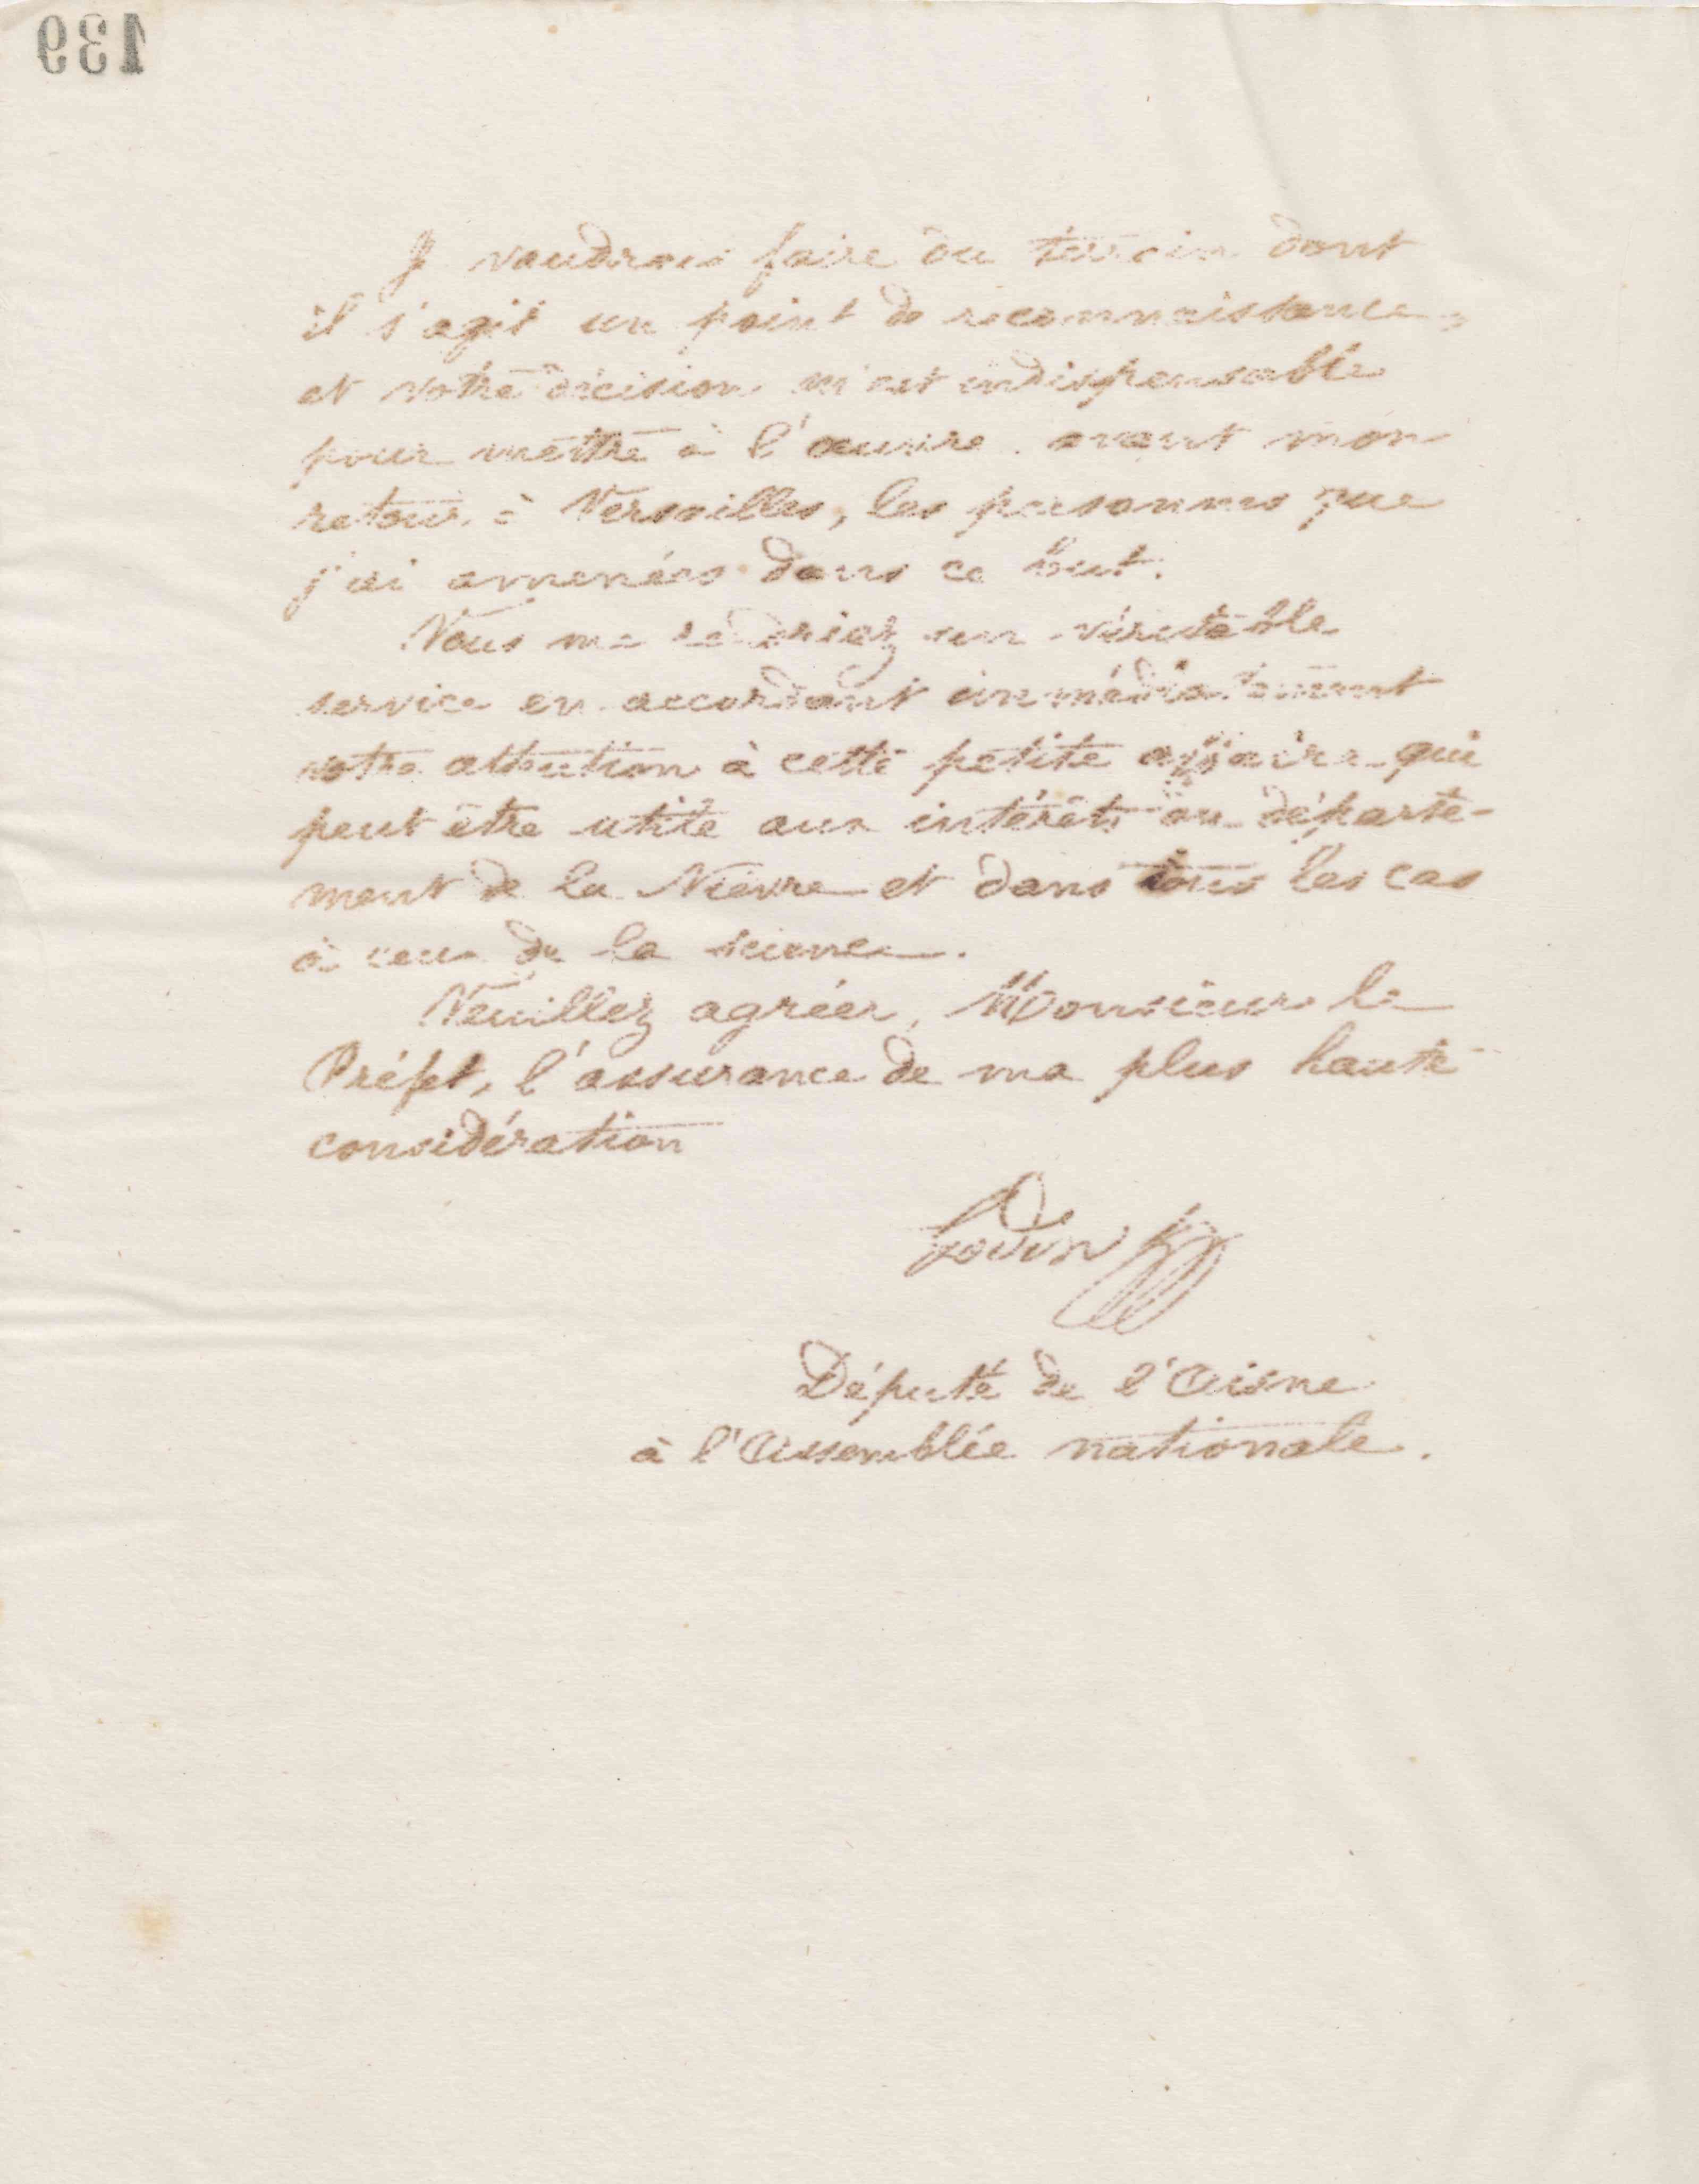 139
Je voudrais faire du terrain dont
il s'agit un point de reconnaissance,
et votre décision m'est indispensable
pour mettre à l'œuvre avant mon
retour à Versailles, les personnes que
j'ai amenées dans ce but.
Vous me rendriez un véritable
service en accordant immédiatement
votre attention à cette petite affaire qui
peut être utile aux intérêts du départe-
ment de la Nièvre et dans tous les cas
à ceux de la science.
Veuillez agréer, Monsieur le
Préfet, l'assurance de ma plus haute
considération
Godin
Député de l'Aisne
à l'Assemblée nationale.